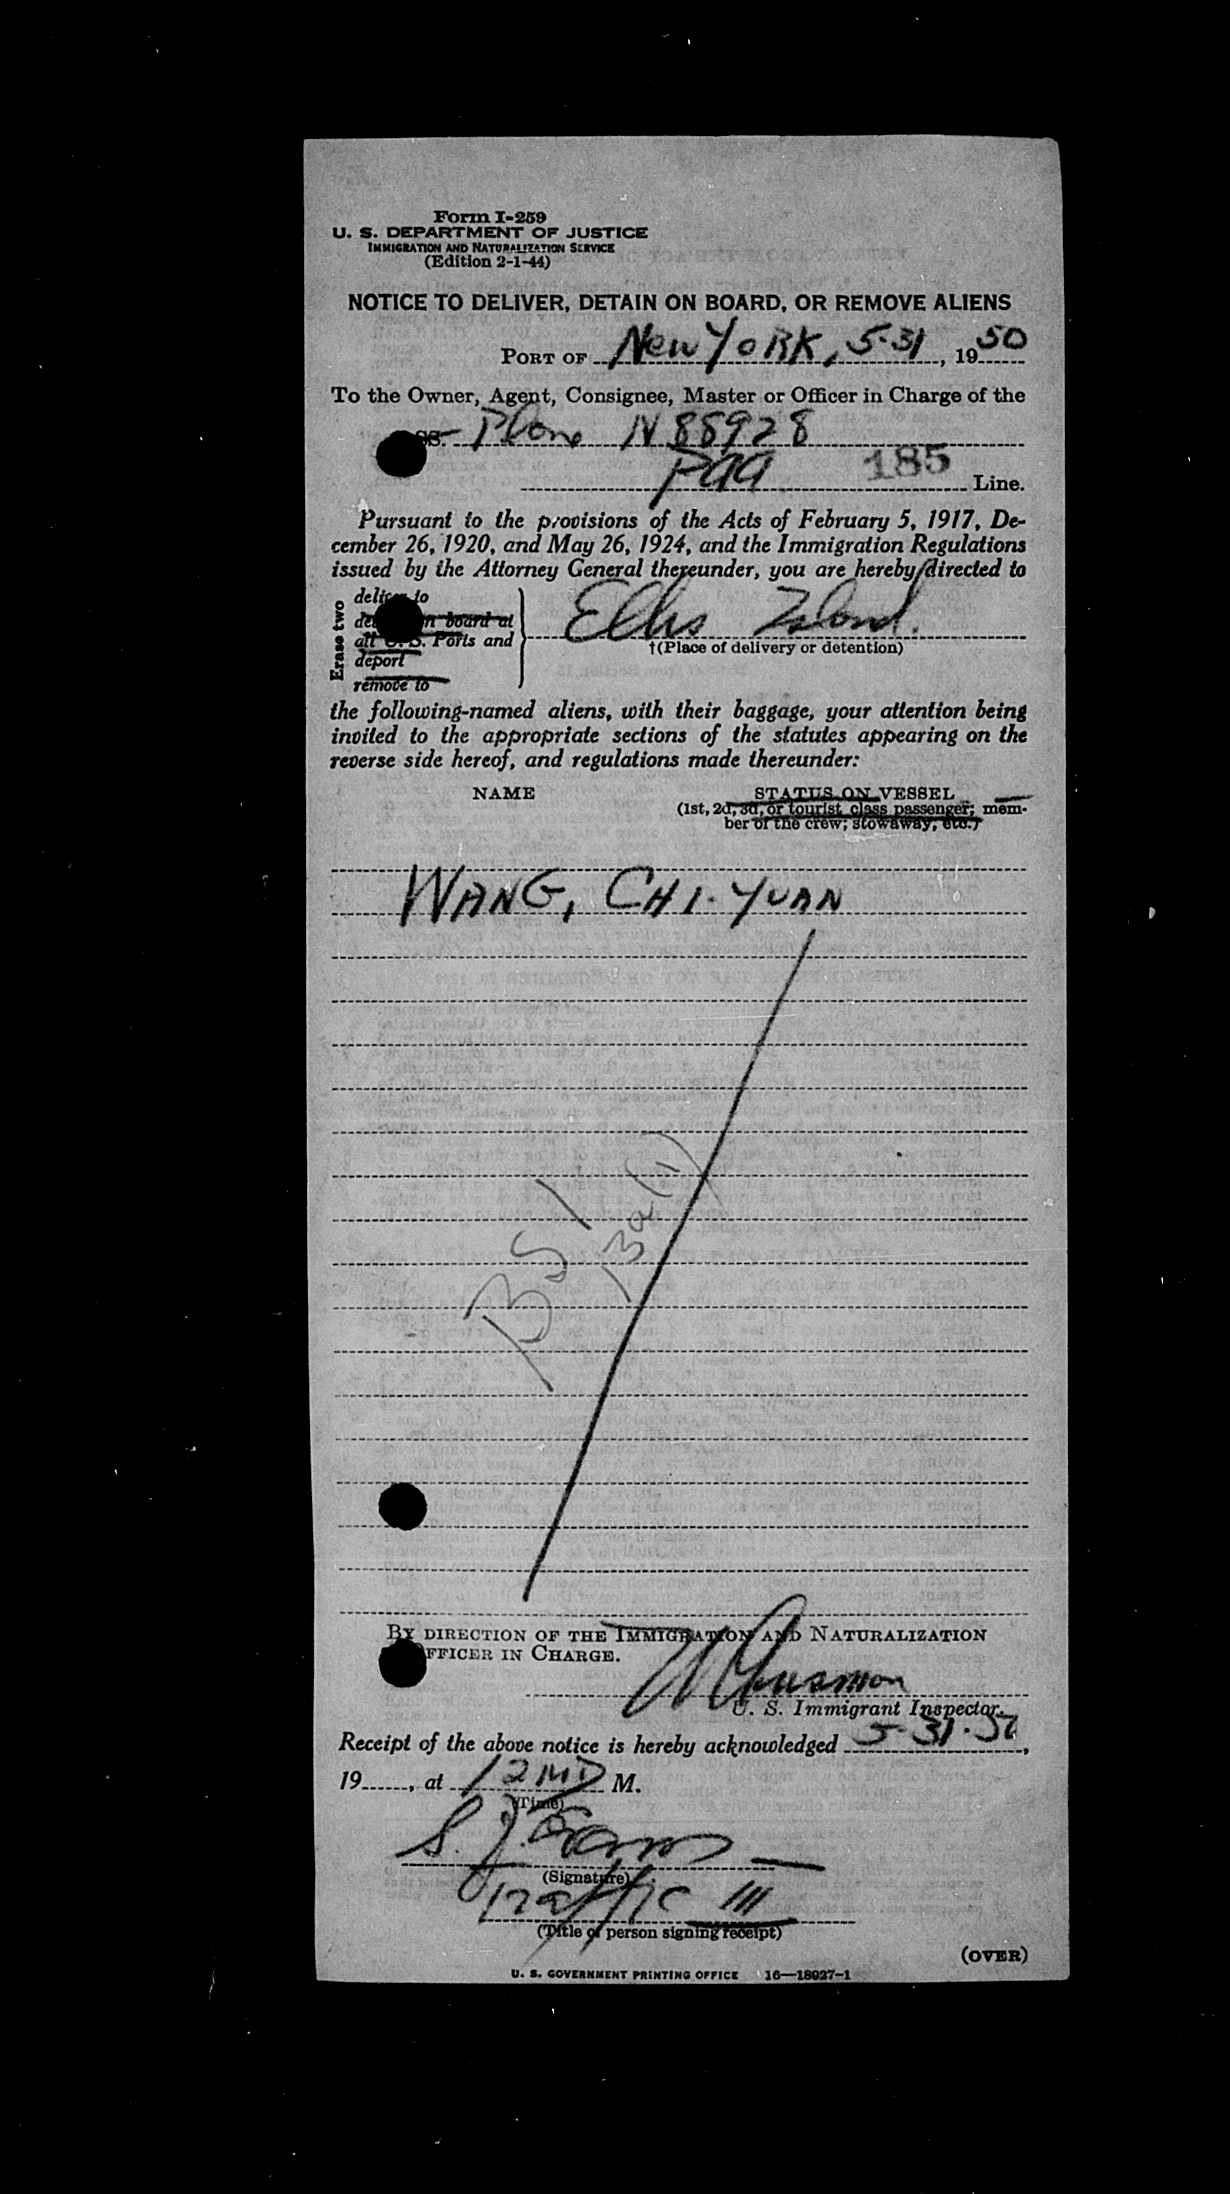 Form I-259
U. S. DEPARTMENT OF JUSTICE
IMMIGRATION AND NATURALIZATION SERVICE
(Edition 2-1-44)
NOTICE TO DELIVER, DETAIN ON BOARD, OR REMOVE ALIENS
PORT OF New YORK, 5-31, 1950
To the Owner, Agent, Consignee, Master or Officer in Charge of the
SS. Plane N 88928
PAA 185 Line.
Pursuant to the provisions of the Acts of February 5, 1917, De-
cember 26, 1920, and May 26, 1924, and the Immigration Regulations
issued by the Attorney General thereunder, you are hereby directed to
Erase two
deliver to
on board at
all U. S. Ports and
deport
remove to
Ellis Island.
†(Place of delivery or detention)
the following-named aliens, with their baggage, your attention being
invited to the appropriate sections of the statutes appearing on the
reverse side hereof, and regulations made thereunder:
NAME STATUS ON VESSEL
(1st, 2d, 3d, or tourist class passenger; mem-
ber of the crew; stowaway, etc.)
WANG, CHI-YUAN
BSI
13a(1)
BY DIRECTION OF THE IMMIGRATION AND NATURALIZATION
OFFICER IN CHARGE.
U. S. Immigrant Inspector.
Receipt of the above notice is hereby acknowledged 5-31-50,
19......, at 12 MD M.
(Time)
S. J.
(Signature)
Traffic III
(Title of person signing receipt)
(OVER)
U. S. GOVERNMENT PRINTING OFFICE 16—18927-1